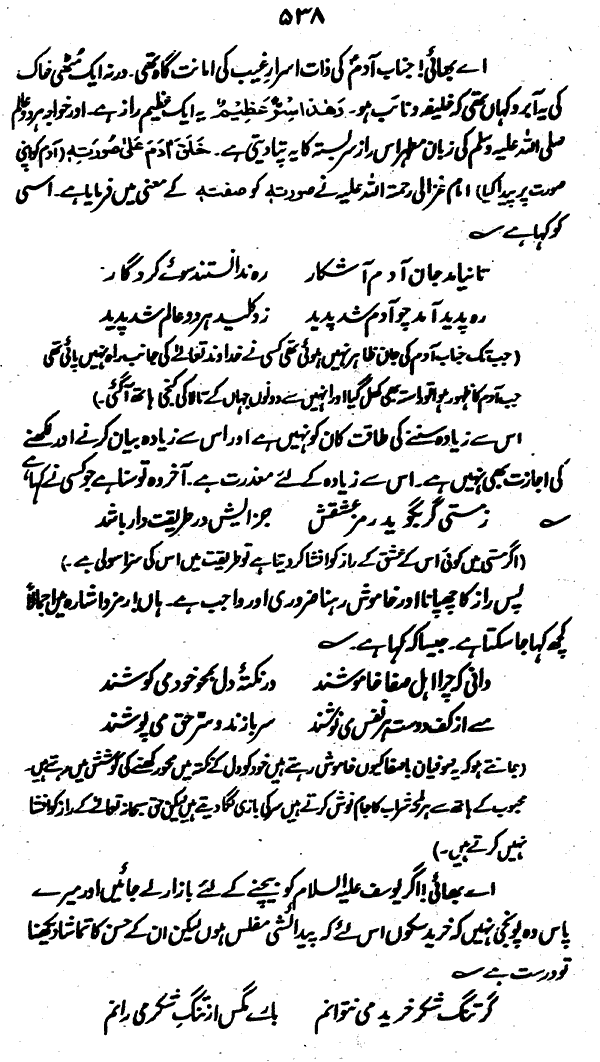 ۵۳۸
اے بھائی! جناب آدمؑ کی ذات اسرار غیب کی امانت گاہ تھی۔ ورنہ ایک مٹھی خاک
کی یہ آبرو کہاں تھی کہ خلیفہ و نائب ہو۔ وَھٰذا سِرٌّ عَظِیْمٌ یہ ایک عظیم راز ہے۔ اور خواجہ ہر دو عالم
صلی اللہ علیہ وسلم کی زبان مطہر اس راز سربستہ کا یہ پتا دیتی ہے۔ خَلَقَ آدَمَ عَلیٰ صُورَتِہٖ (آدم کو اپنی
صورت پر پیدا کیا) امام غزالی رحمتہ اللہ علیہ نے صورتہٖ کو صفتہٖ کے معنی میں فرمایا ہے۔ اسی
کو کہا ہے ؎
تا نیامد جان آدم آشکار رہ ندانستند سوئے کردگار
رہ پدید آمد چو آدم شد پدید زو کلید ہر دو عالم شد پدید
(جب تک جناب آدم کی جان ظاہر نہیں ہوئی تھی کسی نے خداوند تعالےٰ کی جانب راہ نہیں پائی تھی
جب آدم کا ظہور ہوا تو راستہ بھی کھل گیا اور انہیں سے دونوں جہاں کے تالا کی کنجی ہاتھ آگئی۔)
اس سے زیادہ سننے کی طاقت کان کو نہیں ہے اور اس سے زیادہ بیان کرنے اور لکھنے
کی اجازت بھی نہیں ہے۔ اس سے زیادہ کے لئے معذرت ہے۔ آخر وہ تو سنا ہے جو کسی نے کہا ہے
؎ زمستی گر بگوید رمز عشقش جزالیش در طریقت دار باشد
(اگر مستی میں کوئی اس کے عشق کے راز کو افشا کر دیتا ہے تو طریقت میں اس کی سزا سولی ہے۔)
پس راز کا چھپانا اور خاموش رہنا ضروری اور واجب ہے۔ ہاں! رمز و اشارہ میں اجمالاً
کچھ کہا جا سکتا ہے۔ جیسا کہ کہا ہے۔ ؎
دانی کہ چرا اہل صفا خاموشند در نکتۂ دل بمحو خود می کوشند
مے از کف دوست ہر نفس می نوشند سر بازند و سر حق می پوشند
(جانتے ہو کہ یہ صوفیان باصفا کیوں خاموش رہتے ہیں خود کو دل کے نکتہ میں محو رکھنے کی کوشش میں رہتے ہیں۔
محبوب کے ہاتھ سے ہر لمحہ شراب کا جام نوش کرتے ہیں سر کی بازی لگا دیتے ہیں لیکن حق سبحانہ تعالےٰ کے راز کو افشا
نہیں کرتے ہیں۔)
اے بھائی! اگر یوسف علیہ السلام کو بیچنے کے لئے بازار لے جائیں اور میرے
پاس وہ پونجی نہیں کہ خرید سکوں اس لئے کہ پیدائشی مفلس ہوں لیکن ان کے حسن کا تماشا دیکھنا
تو درست ہے ؎
گر تنگ شکر خرید می نتوانم بارے مگس از تنگ شکر می رانم